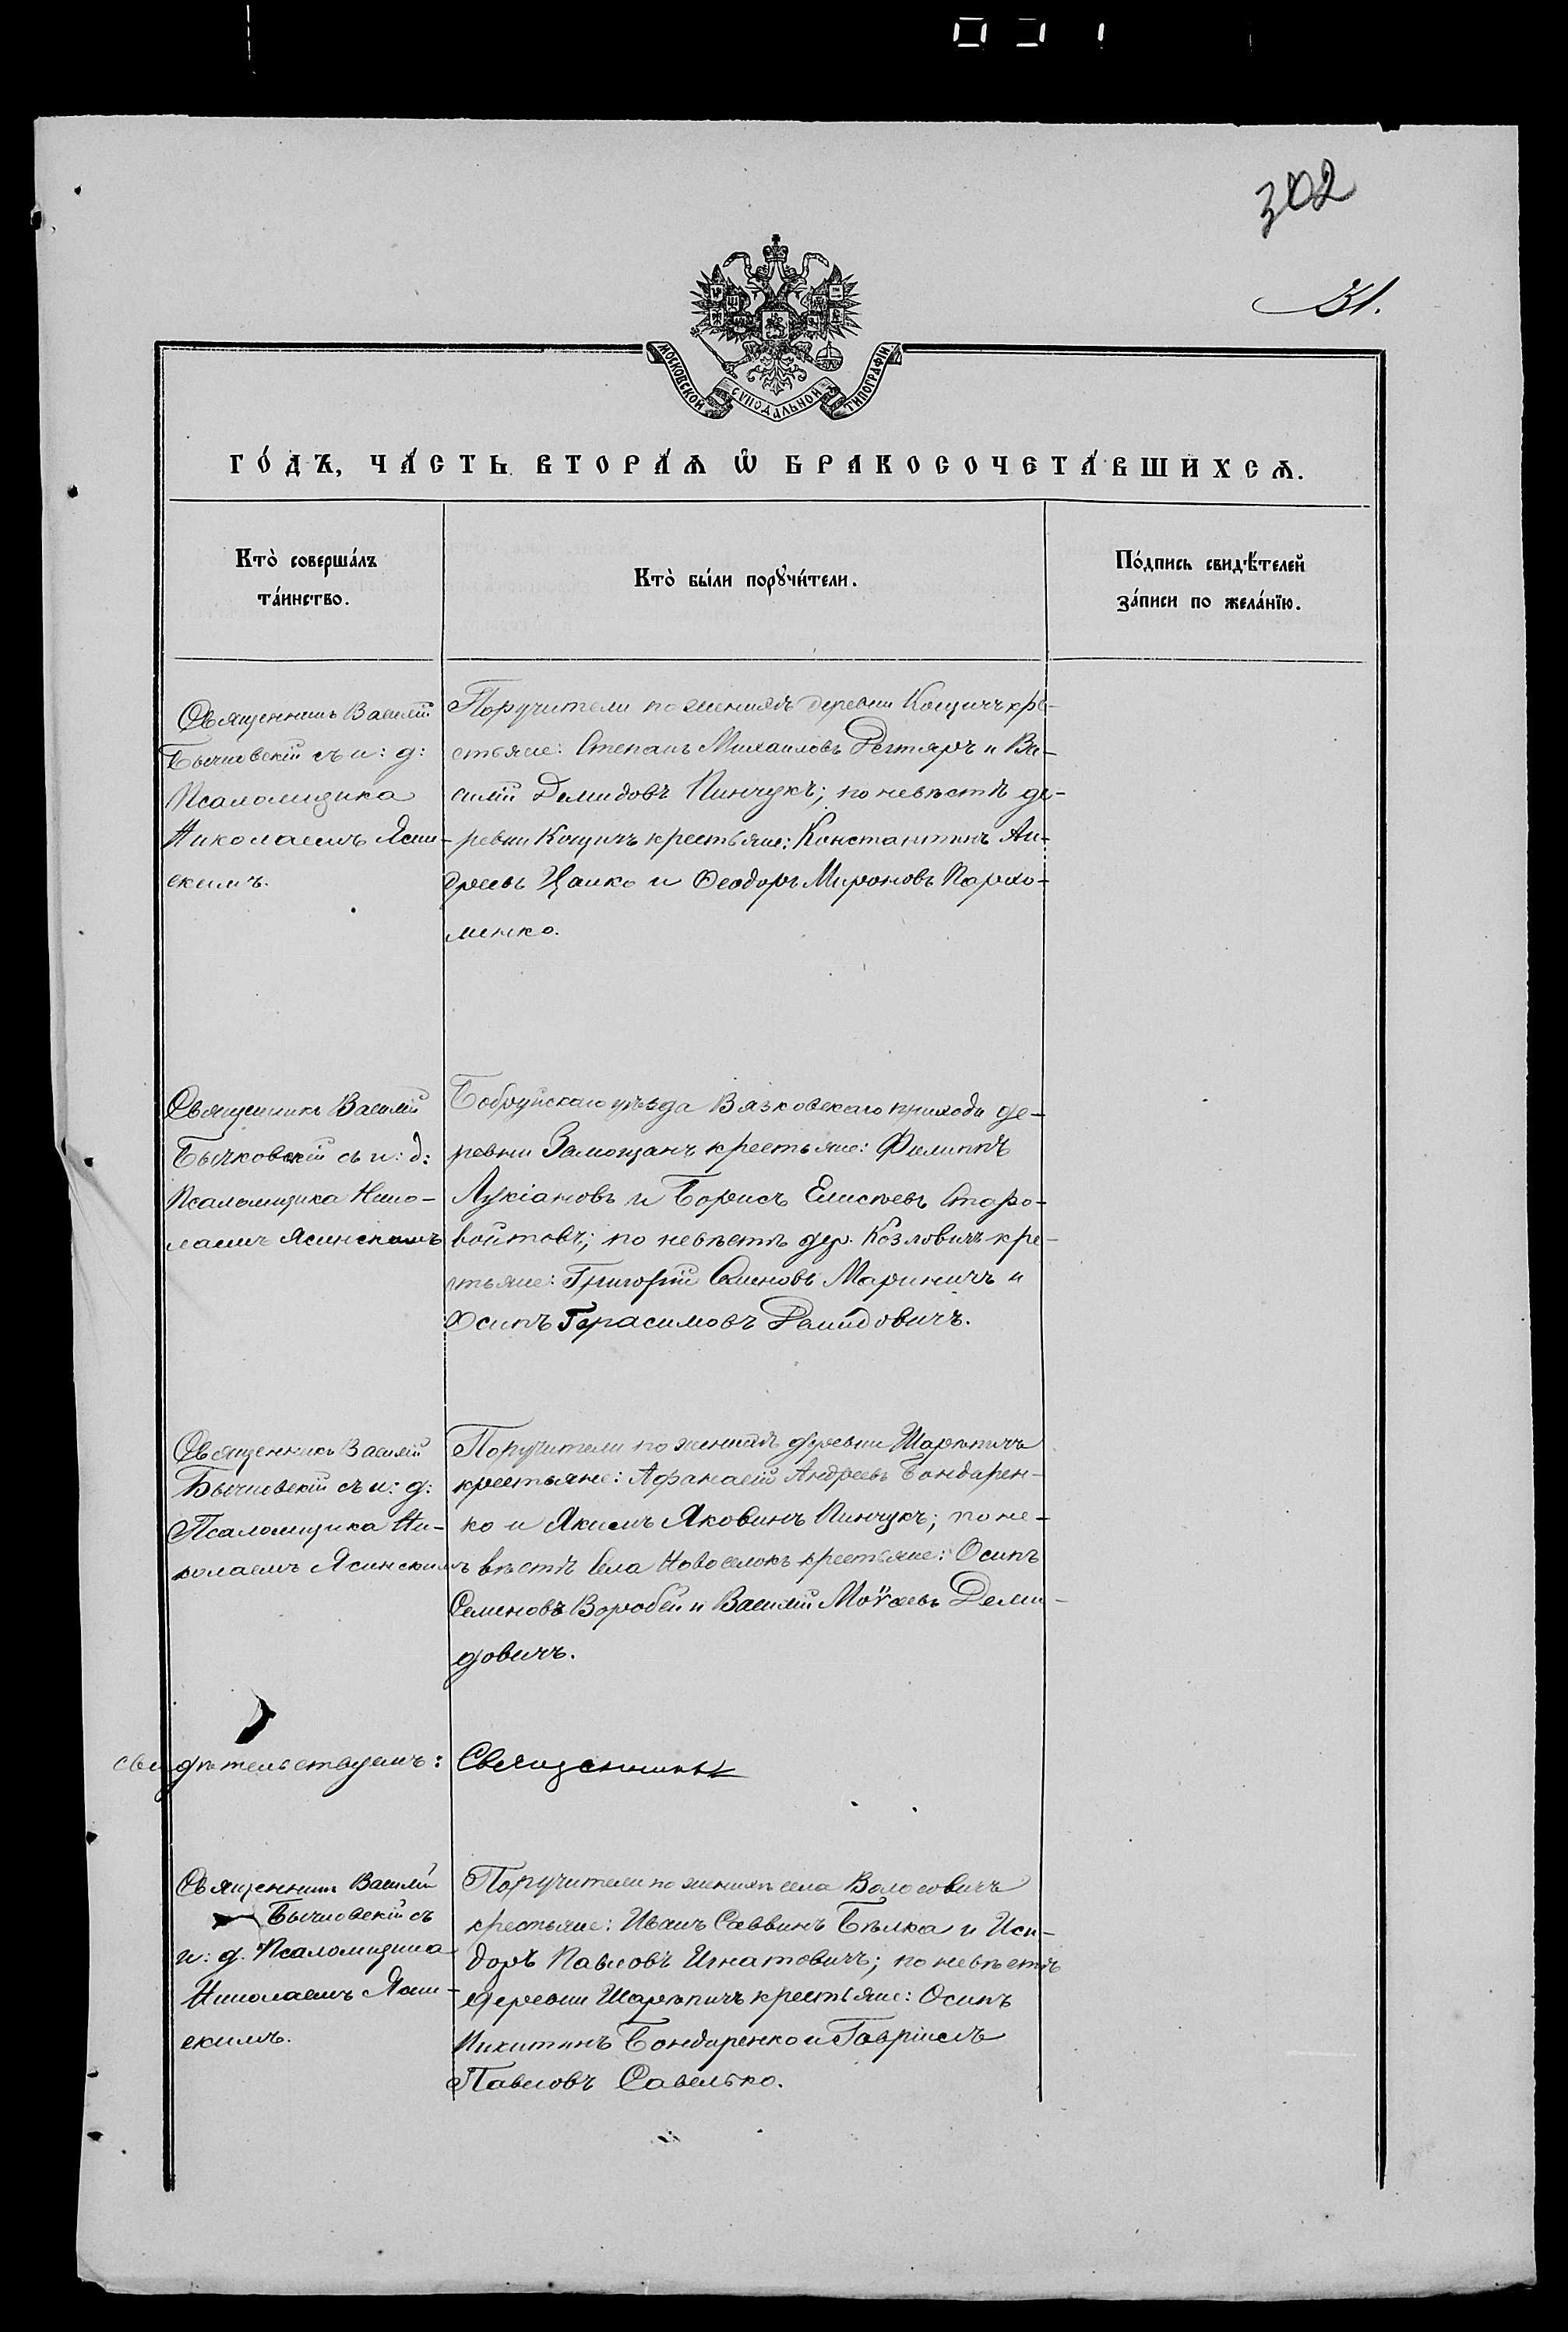 302
31.
МОСКОВСКОЙ СѴНОДАЛЬНОЙ ТИПОГРАФІИ.
ГО́ДЪ, ЧА́СТЬ ВТОРА́Ѧ Ѽ БРАКОСОЧЕТА́ВШИХСѦ.
Кто̀ соверша́лъ
та́инство.
Кто̀ бы́ли порꙋчи́тели.
По́дпись свидѣ́телей
за́писи по жела́нїю.
Священникъ Василій
Бычковскій съ и: д:
Псаломщика
Николаемъ Ясин-
скимъ.
Поручители по женихѣ деревни Кощичъ кре-
стьяне: Степанъ Михаиловъ Дегтяръ и Ва-
силій Демидовъ Пинчукъ; по невѣстѣ де-
ревни Кощичъ крестьяне: Константинъ Ан-
дреевъ Цалко и Ѳеодоръ Мироновъ Пархо-
менко.
Священникъ Василій
Бычковскій съ и: д:
Псаломщика Нико-
лаемъ Ясинскимъ
Бобруйскаго уѣзда Вязковскаго прихода де-
ревни Замощанъ крестьяне: Филиппъ
Лукіановъ и Борисъ Елисѣевъ Старо-
войтовъ; по невѣстѣ дер. Козловичъ кре-
стьяне: Григорій Семеновъ Мариничъ и
Осипъ Герасимовъ Демидовичъ.
Священникъ Василій
Бычковскій съ и: д:
Псаломщика Ни-
колаемъ Ясинскимъ
Поручители по женихѣ деревни Шарѣпичъ
крестьяне: Афанасій Андреевъ Бондарен-
ко и Якимъ Яковинъ Пинчукъ; по не-
вѣстѣ Села Новоселокъ крестьяне: Осипъ
Семеновъ Воробей и Василій Моѵсеевъ Деми-
довичъ.
свидѣтельствуемъ: Священникъ
Священникъ Василій
Бычковскій съ
и: д. Псаломщика
Николаемъ Ясин-
скимъ.
Поручители по женихѣ села Волосовичъ
крестьяне: Иванъ Саввинъ Бѣлка и Иси-
доръ Павловъ Игнатовичъ; по невѣстѣ
деревни Шарѣпичъ крестьяне: Осипъ
Никитинъ Бондаренко и Гавріилъ
Павловъ Савелько.